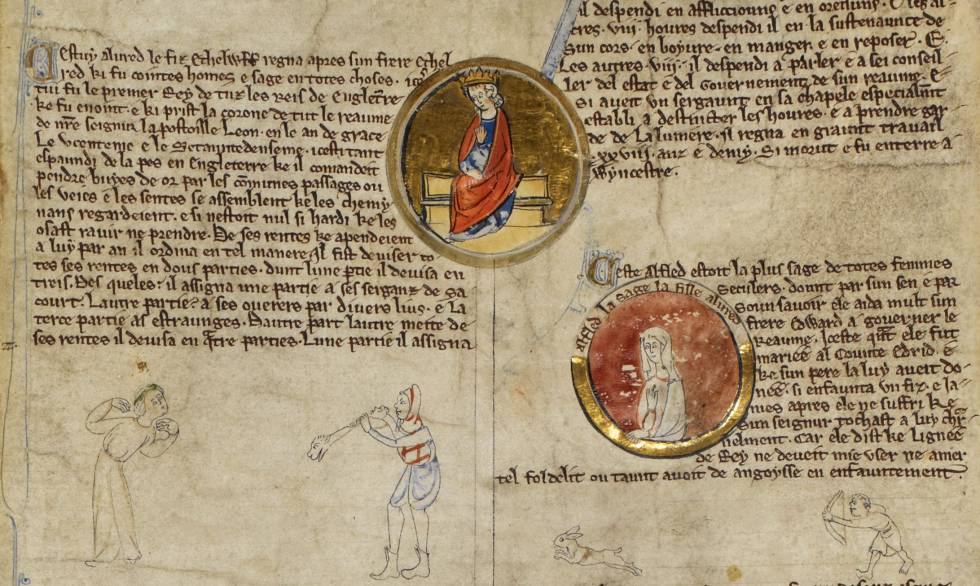 Cestuy Alured le fiz Ethelwlff regna apres sun frere Ethel
red ki fu cointes homes e sage en totes choses. ice
tui fu le premer Rey de tuz les reis de Engleterre
ke fu enoint. e ki prist la corone de tut le reaume
de nr̄e seignur la postoille Leon. en le an de grace
Le vcentenie e le setauntedeuseme. icesti tant
espaundi de la pes en Engleterre ke il comandoit
pendre buyes de or par les cōmunes passages ou
les veies e les sentes se assemblent ke les chemy
nans regardeient. e si nestoit nul si hardi ke les
osast ravir ne prendre. De ses rentes ke apendeient
a luy par an il ordina en tel manere. Il fist deviser to-
tes ses rentes en dous parties. dunt lune p̄tie il devisa en
treis. Des queles: il assigna une partie a ses serganz de sa
court. Lautre partie: a ses overers par divers lius. e la
terce partie as estraunges. Dautre part lautre meite de
ses rentes il devisa en q̄tre parties. Lune partie il assigna
il despendi en afflicciouns e en oresuns. Les au-
tres .viii. houres despendi il en la sustenaunce de
Sun cors. en boyure. en manger e en reposer. E
Les autres .viii. il despendi a parler e a sei conseil
ler del estat e del Governement de sun reaume. E
Si aveit un sergaunt en sa chapele especialmt
establi a destincter les houres. e a prendre gar
de de la lumere. Il regna en graunt travail
.xxviii. anz e demy. Si morut e fu enterre a
Wyncestre.
alfled la sage la fille alured
Ceste Alfled estoit la plus sage de totes femmes
Seculers. dount par sun sen e par
Soun savoir ele aida mult sun
frere Edward a governer le
Reaume. Iceste qñt ele fut
mariee al Counte Edrid. e
ke sun pere la luy aveit do-
nee. si enfaunta un fiz. e la-
mes apres ele ne suffri ke
Sun seignur tochast a luy chr
nelment. Car ele dist ke lignee
de Rey ne deveit mie user ne amer
tel fol delit ou taunt avoit de angoysse en enfauntement.